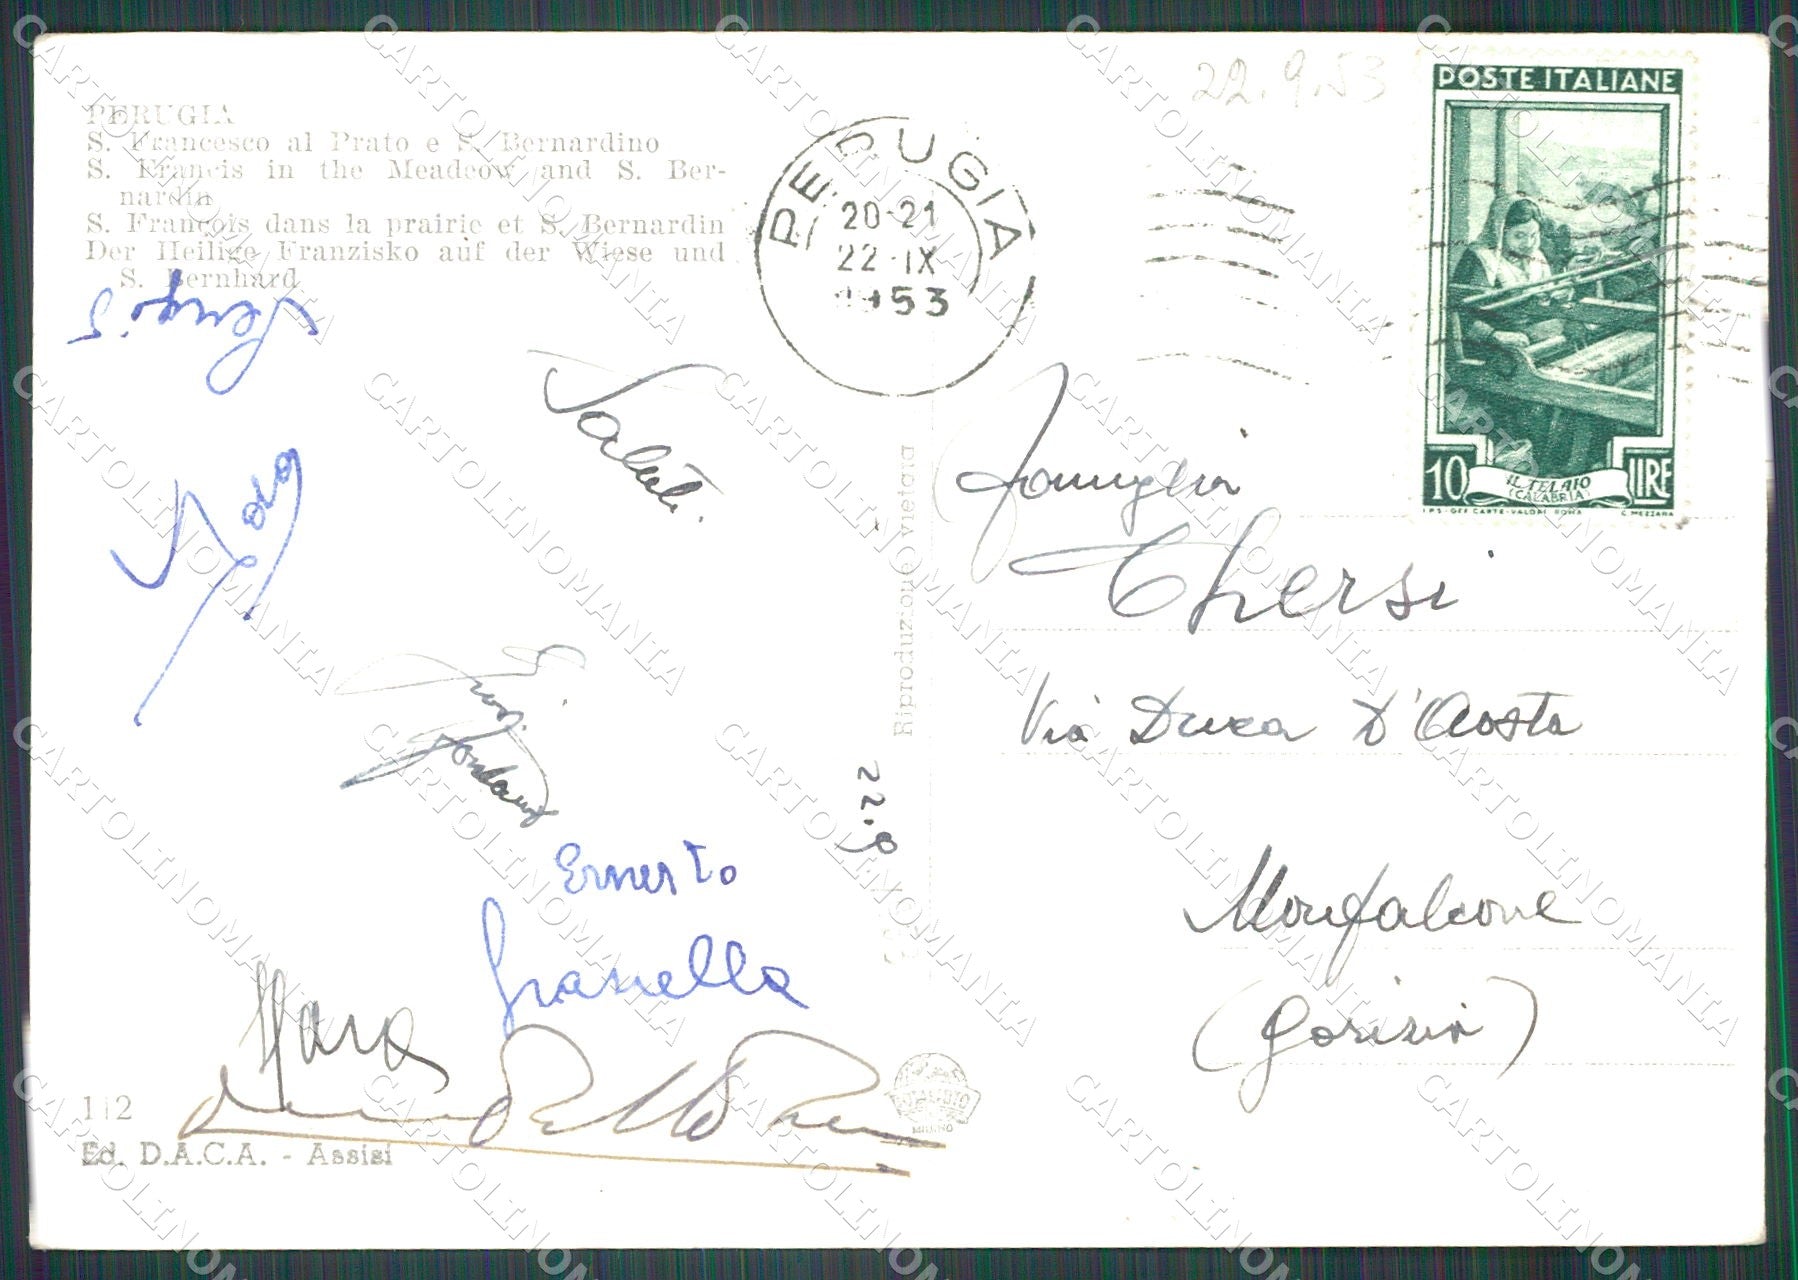 PERUGIA
S. Francesco al Prato e S. Bernardino
S. Francis in the Meadeow and S. Ber-
nardin
S. François dans la prairie et S. Bernardin
Der Heilige Franzisko auf der Wiese und
S. Bernhard
22.9.53
PERUGIA
20-21
22·IX
1953
POSTE ITALIANE
10 LIRE
IL TELAIO
(CALABRIA)
I.P.S.-OFF. CARTE-VALORI ROMA
C. MEZZANA
Saluti.
Famiglia
Chersi
Via Duca D'Aosta
Monfalcone
(Gorizia)
Riproduzione vietata
22.9
Ernesto
Graziella
Mara
112
Ed. D.A.C.A. - Assisi
FOTALFOTO
MILANO
CARTOLINOMANIA